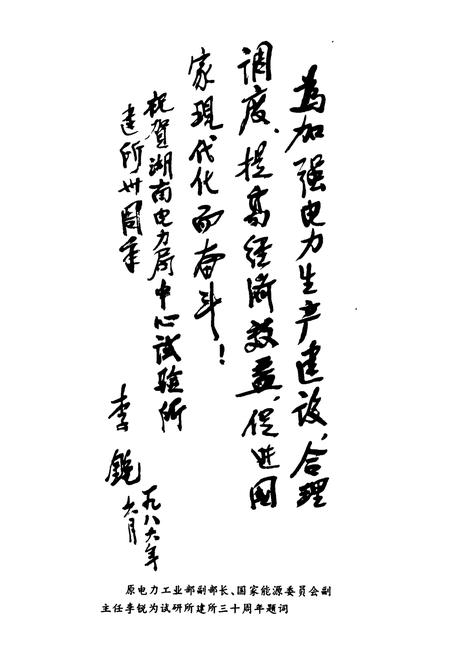 为加强电力生产建设、合理
调度、提高经济效益、促进国
家现代化而奋斗！
祝贺湖南电力局中心试验所
建所卅周年
李锐
一九八六年
六月
原电力工业部副部长、国家能源委员会副
主任李锐为试研所建所三十周年题词